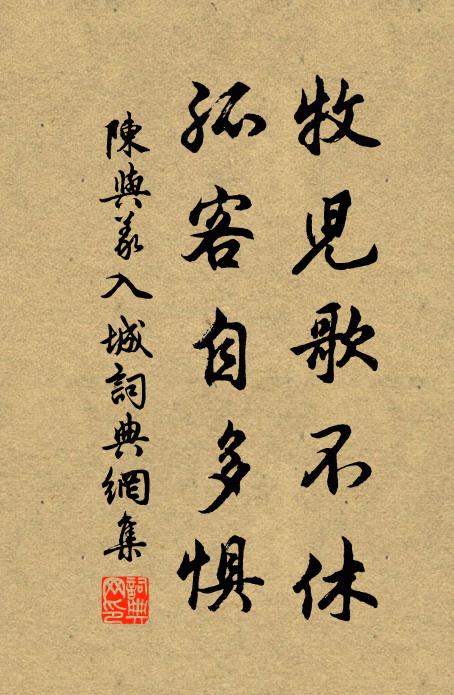 牧児歌不休
孤客自多惧
陳與義入城詞典網集
詞典網印